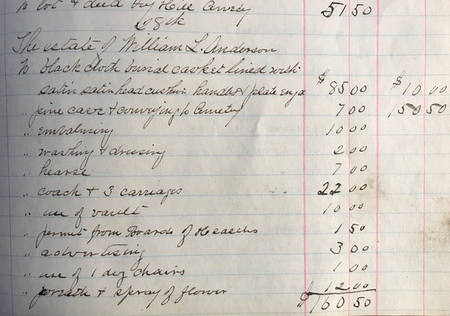 To lot & deed Bay Hill Cemetery 51 50
The estate of William L. Anderson
To black cloth burial casket lined with
satin satin head cushion handles & plate eng'd $ 85 00 $ 10 00
" pine case & conveying to Cemetery 7 00 150 50
" embalming 10 00
" washing & dressing 2 00
" hearse 7 00
" coach & 3 carriages 22 00
" use of vault 10 00
" permit from Boards of Healths 1 50
" advertising 3 00
" use of 1 doz chairs 1 00
" wreath & spray of flower 12 00
$ 160 50